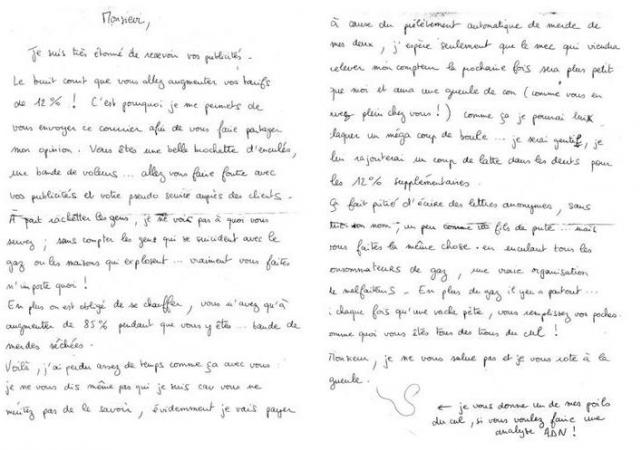 Monsieur,
Je suis très étonné de recevoir vos publicités.
Le bruit court que vous allez augmenter vos tarifs
de 12% ! C'est pourquoi je me permets de
vous envoyer ce courrier afin de vous faire partager
mon opinion. Vous êtes une belle brochette d'enculés,
une bande de voleurs... allez vous faire foutre avec
vos publicités et votre pseudo service auprès des clients.
A part racketter les gens, je ne vois pas à quoi vous
servez ; sans compter les gens qui se suicident avec le
gaz ou les maisons qui explosent... vraiment vous faites
n'importe quoi !
En plus on est obligé de se chauffer, vous n'avez qu'à
augmenter de 85% pendant que vous y êtes... bande de
merdes séchées.
Voilà, j'ai perdu assez de temps comme ça avec vous
je ne vous dis même pas qui je suis car vous ne
méritez pas de le savoir, évidemment je vais payer
à cause du prélèvement automatique de merde de
mes deux, j'espère seulement que le mec qui viendra
relever mon compteur la prochaine fois sera plus petit
que moi et aura une gueule de con (comme vous en
avez plein chez vous !) comme ça je pourrai lui
claquer un méga coup de boule... je serai gentil, je
lui rajouterai un coup de latte dans les dents pour
les 12% supplémentaires.
Ça fait pitié d'écrire des lettres anonymes, sans
son nom, un peu comme un fils de pute... mais
vous faites la même chose en enculant tous les
consommateurs de gaz, une vraie organisation
de malfaiteurs. En plus du gaz il y en a partout...
à chaque fois qu'une vache pète, vous remplissez vos poches
comme quoi vous êtes tous des trous du cul !
Monsieur, je ne vous salue pas et je vous rote à la
gueule.
← je vous donne un de mes poils
du cul, si vous voulez faire une
analyse ADN !